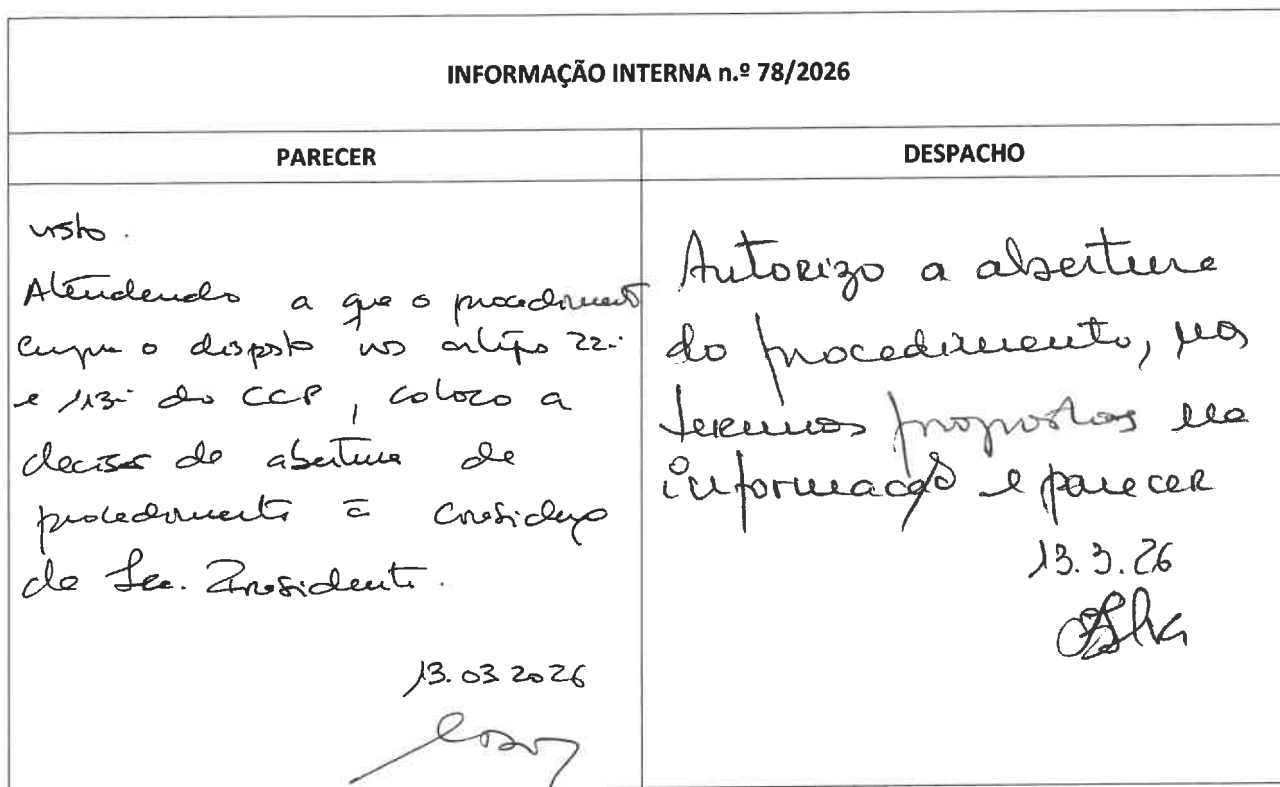 INFORMAÇÃO INTERNA n.º 78/2026
PARECER
DESPACHO
visto.
Atendendo a que o procediment
cumpre o disposto nos artigo 22.º
e 113º do CCP, coloco a
decisão de abertura de
procedimento à
da Sra. Presidente.
13.03.2026
Autorizo a abertura
do procedimento, nos
termos propostos na
informação e parecer
13.3.26